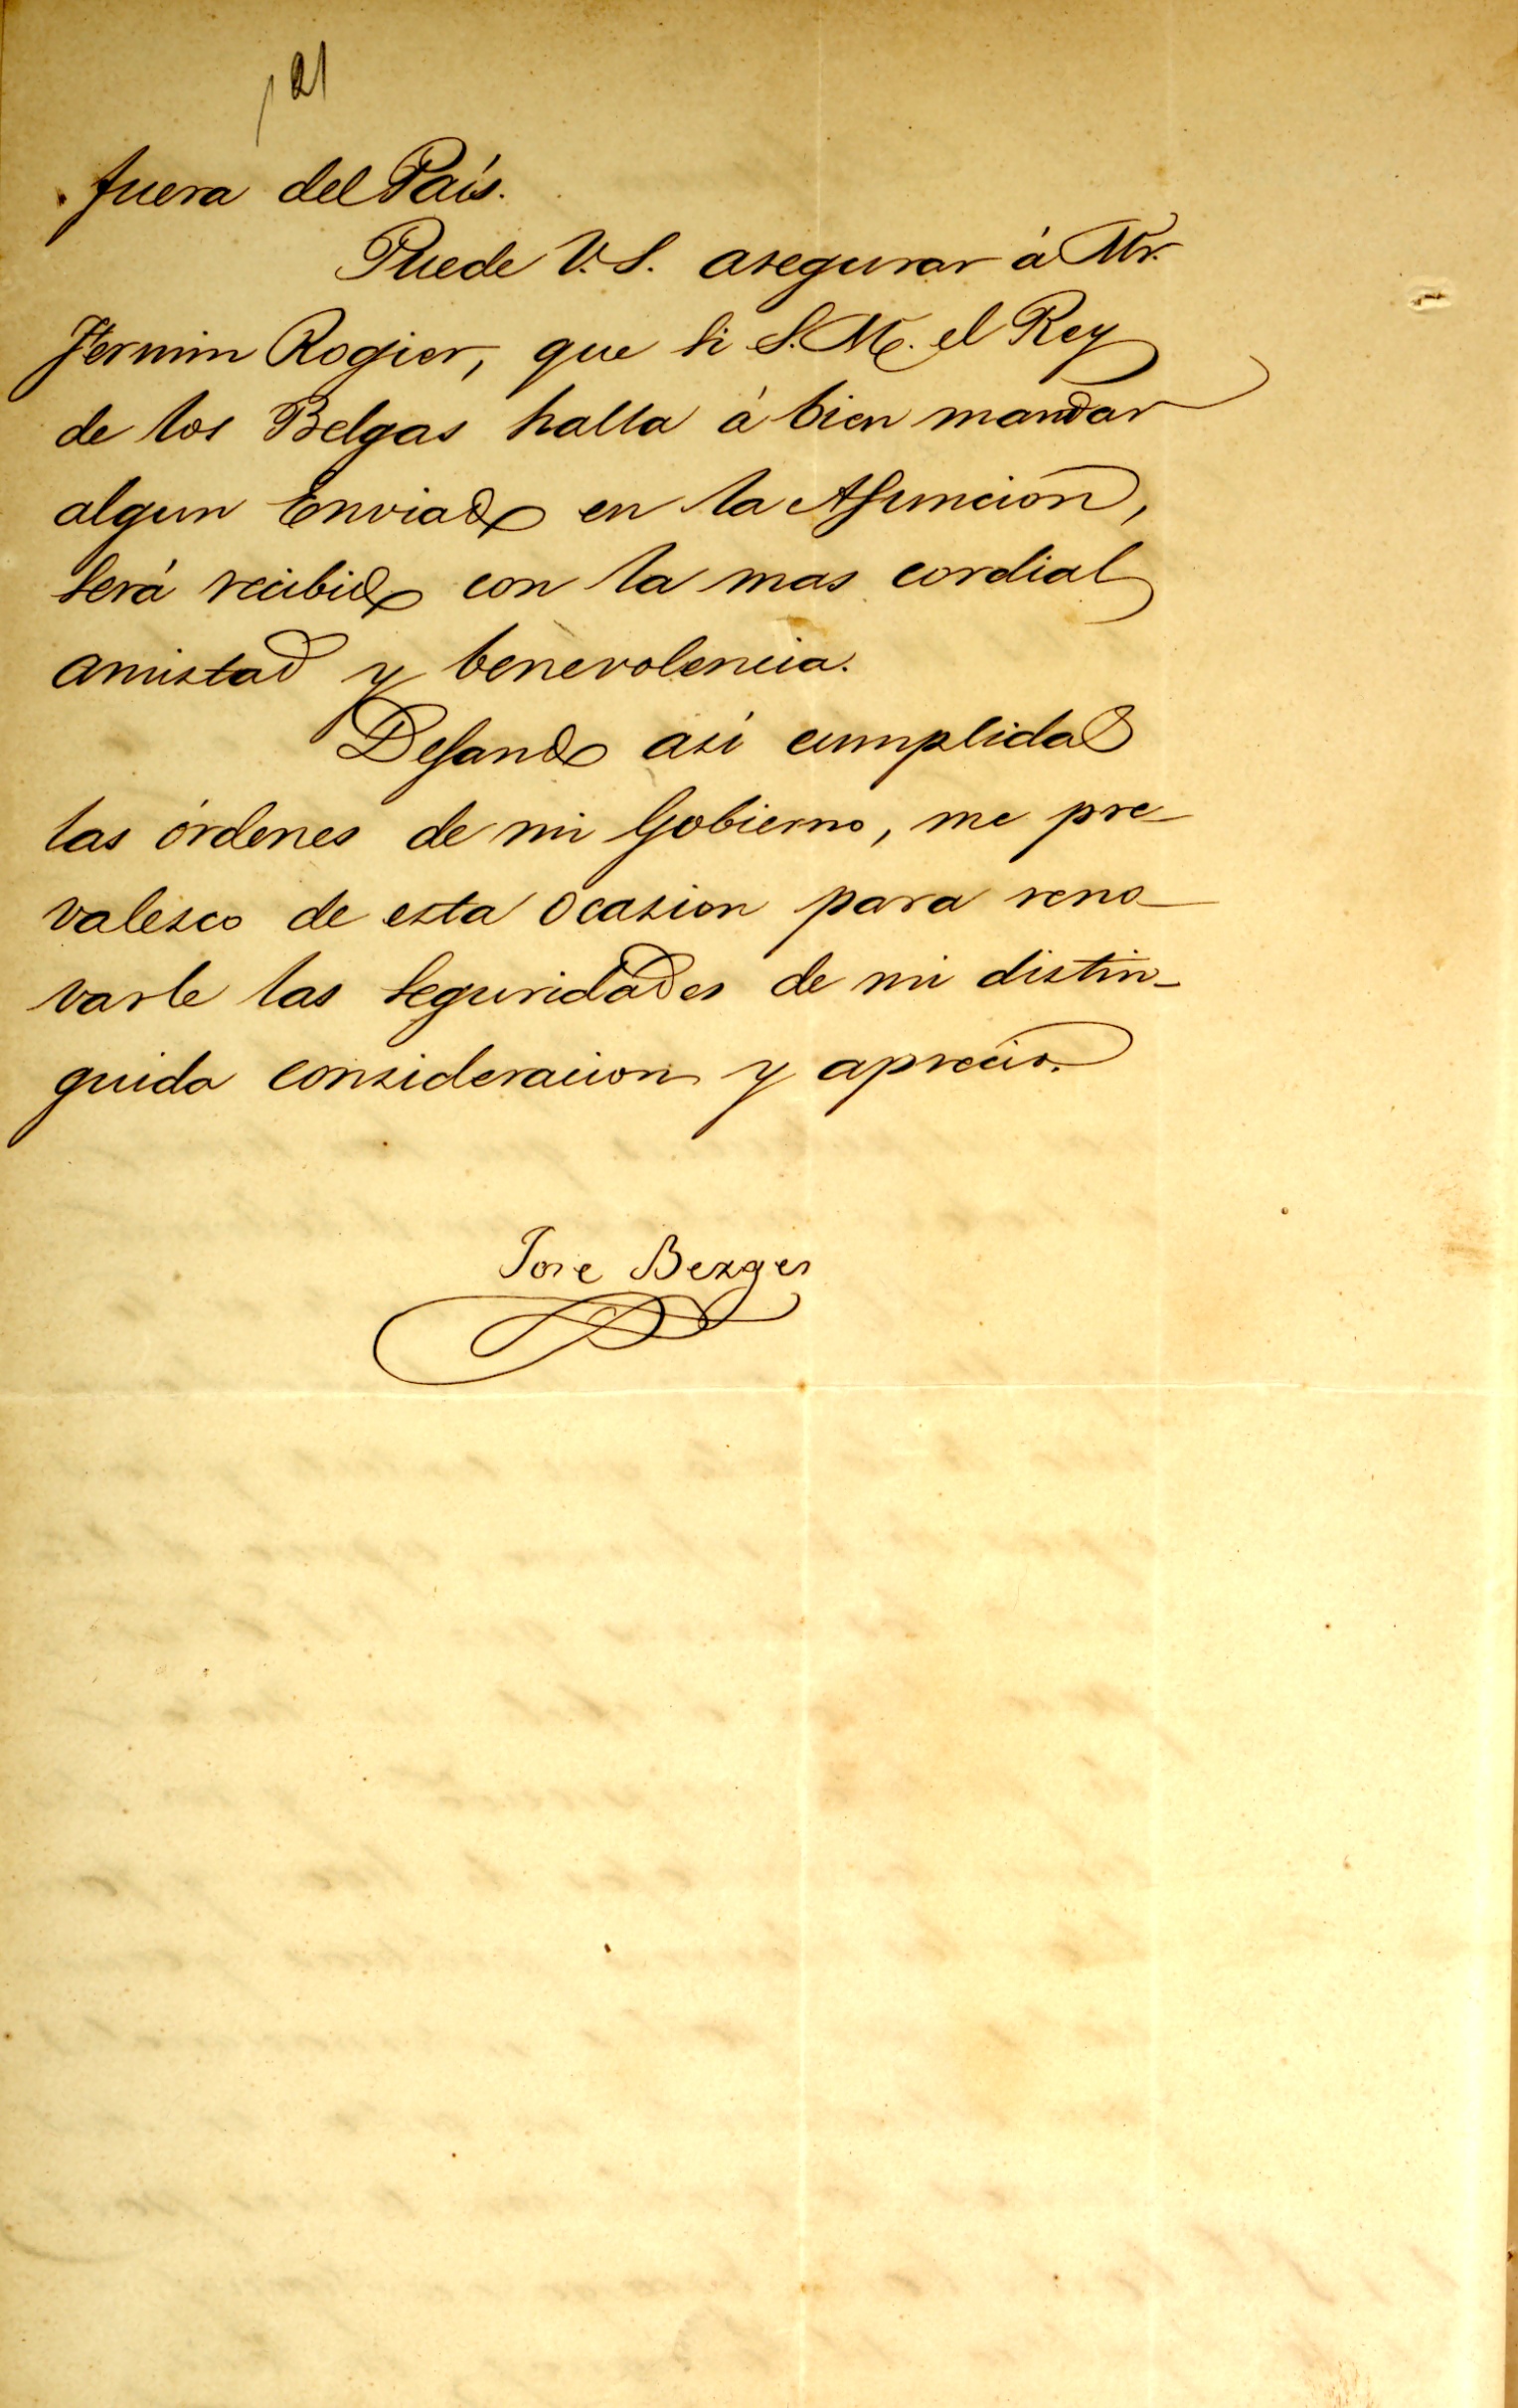 121
fuera del País.
Puede V.S. asegurar á Mr.
Fermin Rogier, que si S.M. el Rey
de los Belgas halla á bien mandar
algun Enviado en la Asuncion,
será recibido con la mas cordial
amistad y benevolencia.
Dejando asi cumplidas
las órdenes de mi Gobierno, me pre_
valesco de esta ocasion para reno_
varle las seguridades de mi distin_
guida consideracion y aprecio.
Jose Berges